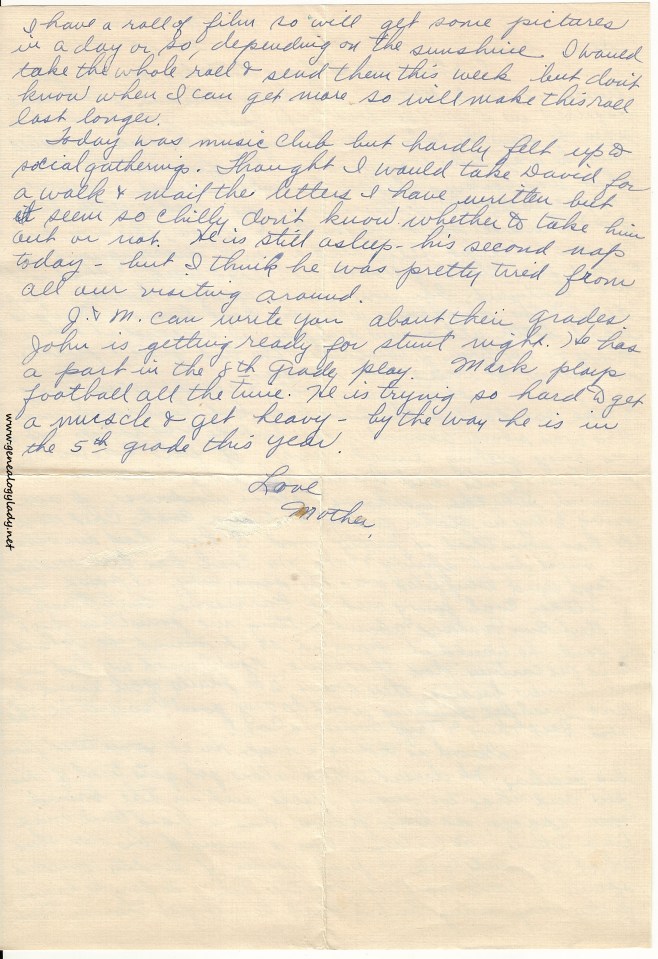 I have a roll of film so will get some pictures
in a day or so, depending on the sunshine. I would
take the whole roll & send them this week but don't
know when I can get more so will make this roll
last longer.
Today was music club but hardly felt up to
social gatherings. Thought I would take David for
a walk & mail the letters I have written but
it seem so chilly don't know whether to take him
out or not. He is still asleep - his second nap
today - but I think he was pretty tired from
all our visiting around.
J. & M. can write you about their grades.
John is getting ready for stunt night. He has
a part in the 8th grade play. Mark plays
football all the time. He is trying so hard to get
a muscle & get heavy - by the way he is in
the 5th grade this year.
Love
Mother.
www.genealogylady.net